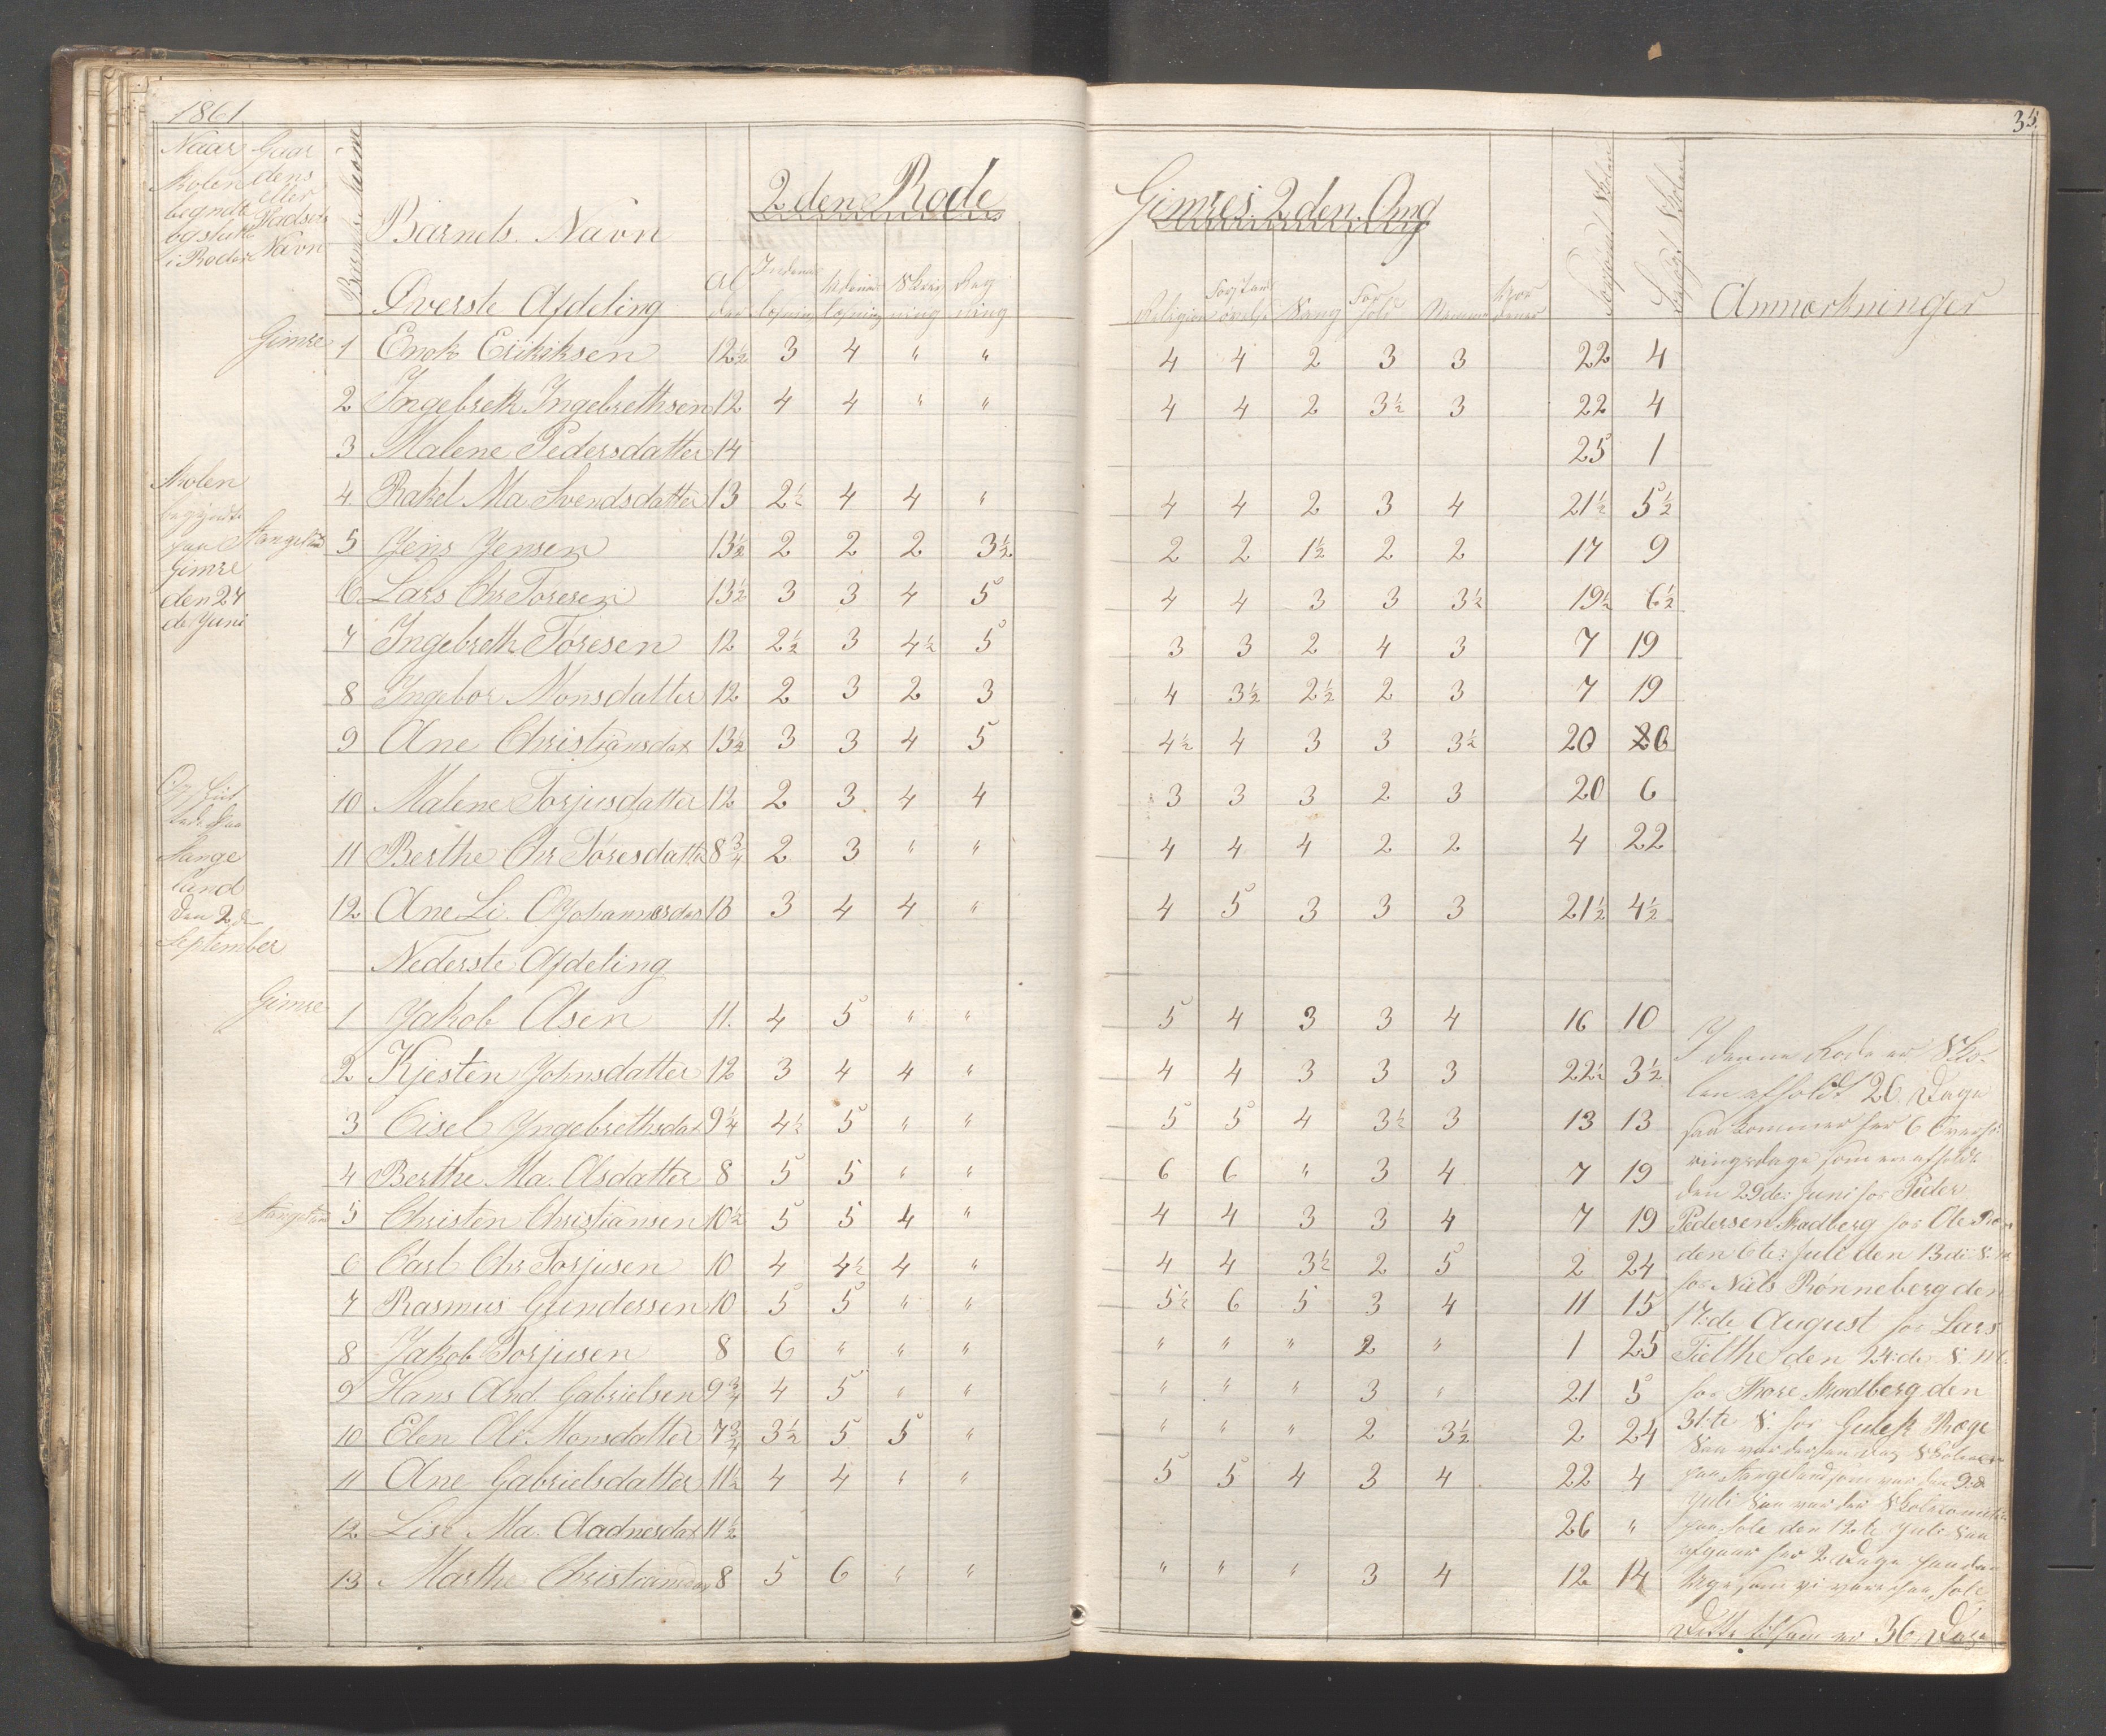 1861
35.
Naar Skolen begyndte og sluttede i Roden
Gaardens eller Pladsens Navn
Barnets Navn
2den Rode
Gimres 2den Omg
Øverste Afdeling
Alder
Religion
Sang
Anmærkninger
Gimre 1 Enok Eriksen 12½ 3 4 " " 4 4 2 3 3 22 4
2 Ingebreth Ingebrethsen 12 4 4 " " 4 4 2 3½ 3 22 4
3 Malene Pedersdatter 14 25 1
4 Rakel Ma. Svendsdatter 13 2½ 4 4 " 4 4 2 3 4 21½ 5½
Stangeland 5 Jens Jensen 13½ 2 2 2 3½ 2 2 1½ 2 2 17 9
6 Lars Chr Toresen 13½ 3 3 4 5 4 4 3 3 3½ 19½ 6½
7 Ingebreth Tøresen 12 2½ 3 4½ 5 3 3 2 4 3 7 19
8 Ingebor Monsdatter 12 2 3 2 3 4 3½ 2½ 2 3 7 19
9 Ane Christiansdat 13¼ 3 3 4 5 4½ 4 3 3 3½ 20 6
10 Malene Torjusdatter 12 2 3 4 4 3 3 3 2 3 20 6
11 Berthe Chr Toresdatter 8¾ 2 3 " " 4 4 4 2 2 4 22
12 Ane Li. Johannesdat 13 3 4 4 " 4 5 3 3 3 21½ 4½
Skolen
begyndte
paa
Gimre
den 24
de Juni
Stange
land
den 2den
September
Nederste Afdeling
Gimre 1 Jakob Olsen 11. 4 5 " " 5 4 3 3 4 16 10
2 Kjesten Johnsdatter 12 3 4 4 " 4 4 3 3 3 22½ 3½
3 Cisel Yngebrethsdat 9¼ 4½ 5 " " 5 5 4 3½ 3 13 13
4 Berthe Ma. Olsdatter 8 5 5 " " 6 6 " 3 4 7 19
Stangeland 5 Christen Christiansen 10½ 5 5 4 " 4 4 3 3 4 7 19
6 Carl Chr Torjusen 10 4 4½ 4 " 4 4 3½ 2 5 2 24
7 Rasmus Gundersen 10 5 5 " " 5½ 6 5 3 4 11 15
8 Jakob Torjusen 8 6 " " " " " " 2 " 1 25
9 Hans And. Gabrielsen 9¾ 4 5 " " " " " 3 " 21 5
10 Elen Ol. Monsdatter 7¾ 3½ 5 5 " " " " 2 3½ 2 24
11 Ane Gabrielsdatter 11½ 4 4 " " 5 5 4 3 4 22 4
12 Lise Ma. Aadnesdat 11½ 26 "
13 Marthe Christiansdat 8 5 6 " " " " " 3 4 12 14
I denne Rode er Sko-
len afholdt 26 Dage
saa kommer her 6 Overhø-
ringsdage som er afholdt
den 29de Juni for Peder
Pedersen Stadberg for Ole
den 6te Juli den 13de
for Niels Rønneberg den
17de August for Lars
den 24de
for Thore Stadberg den
31te for
paa Stangeland som var den 9de
Juli
paa Sole den 12te Juli
afgaar her 2 Dage
som vi vare paa Sole
Dette tilsam er 36 Dage